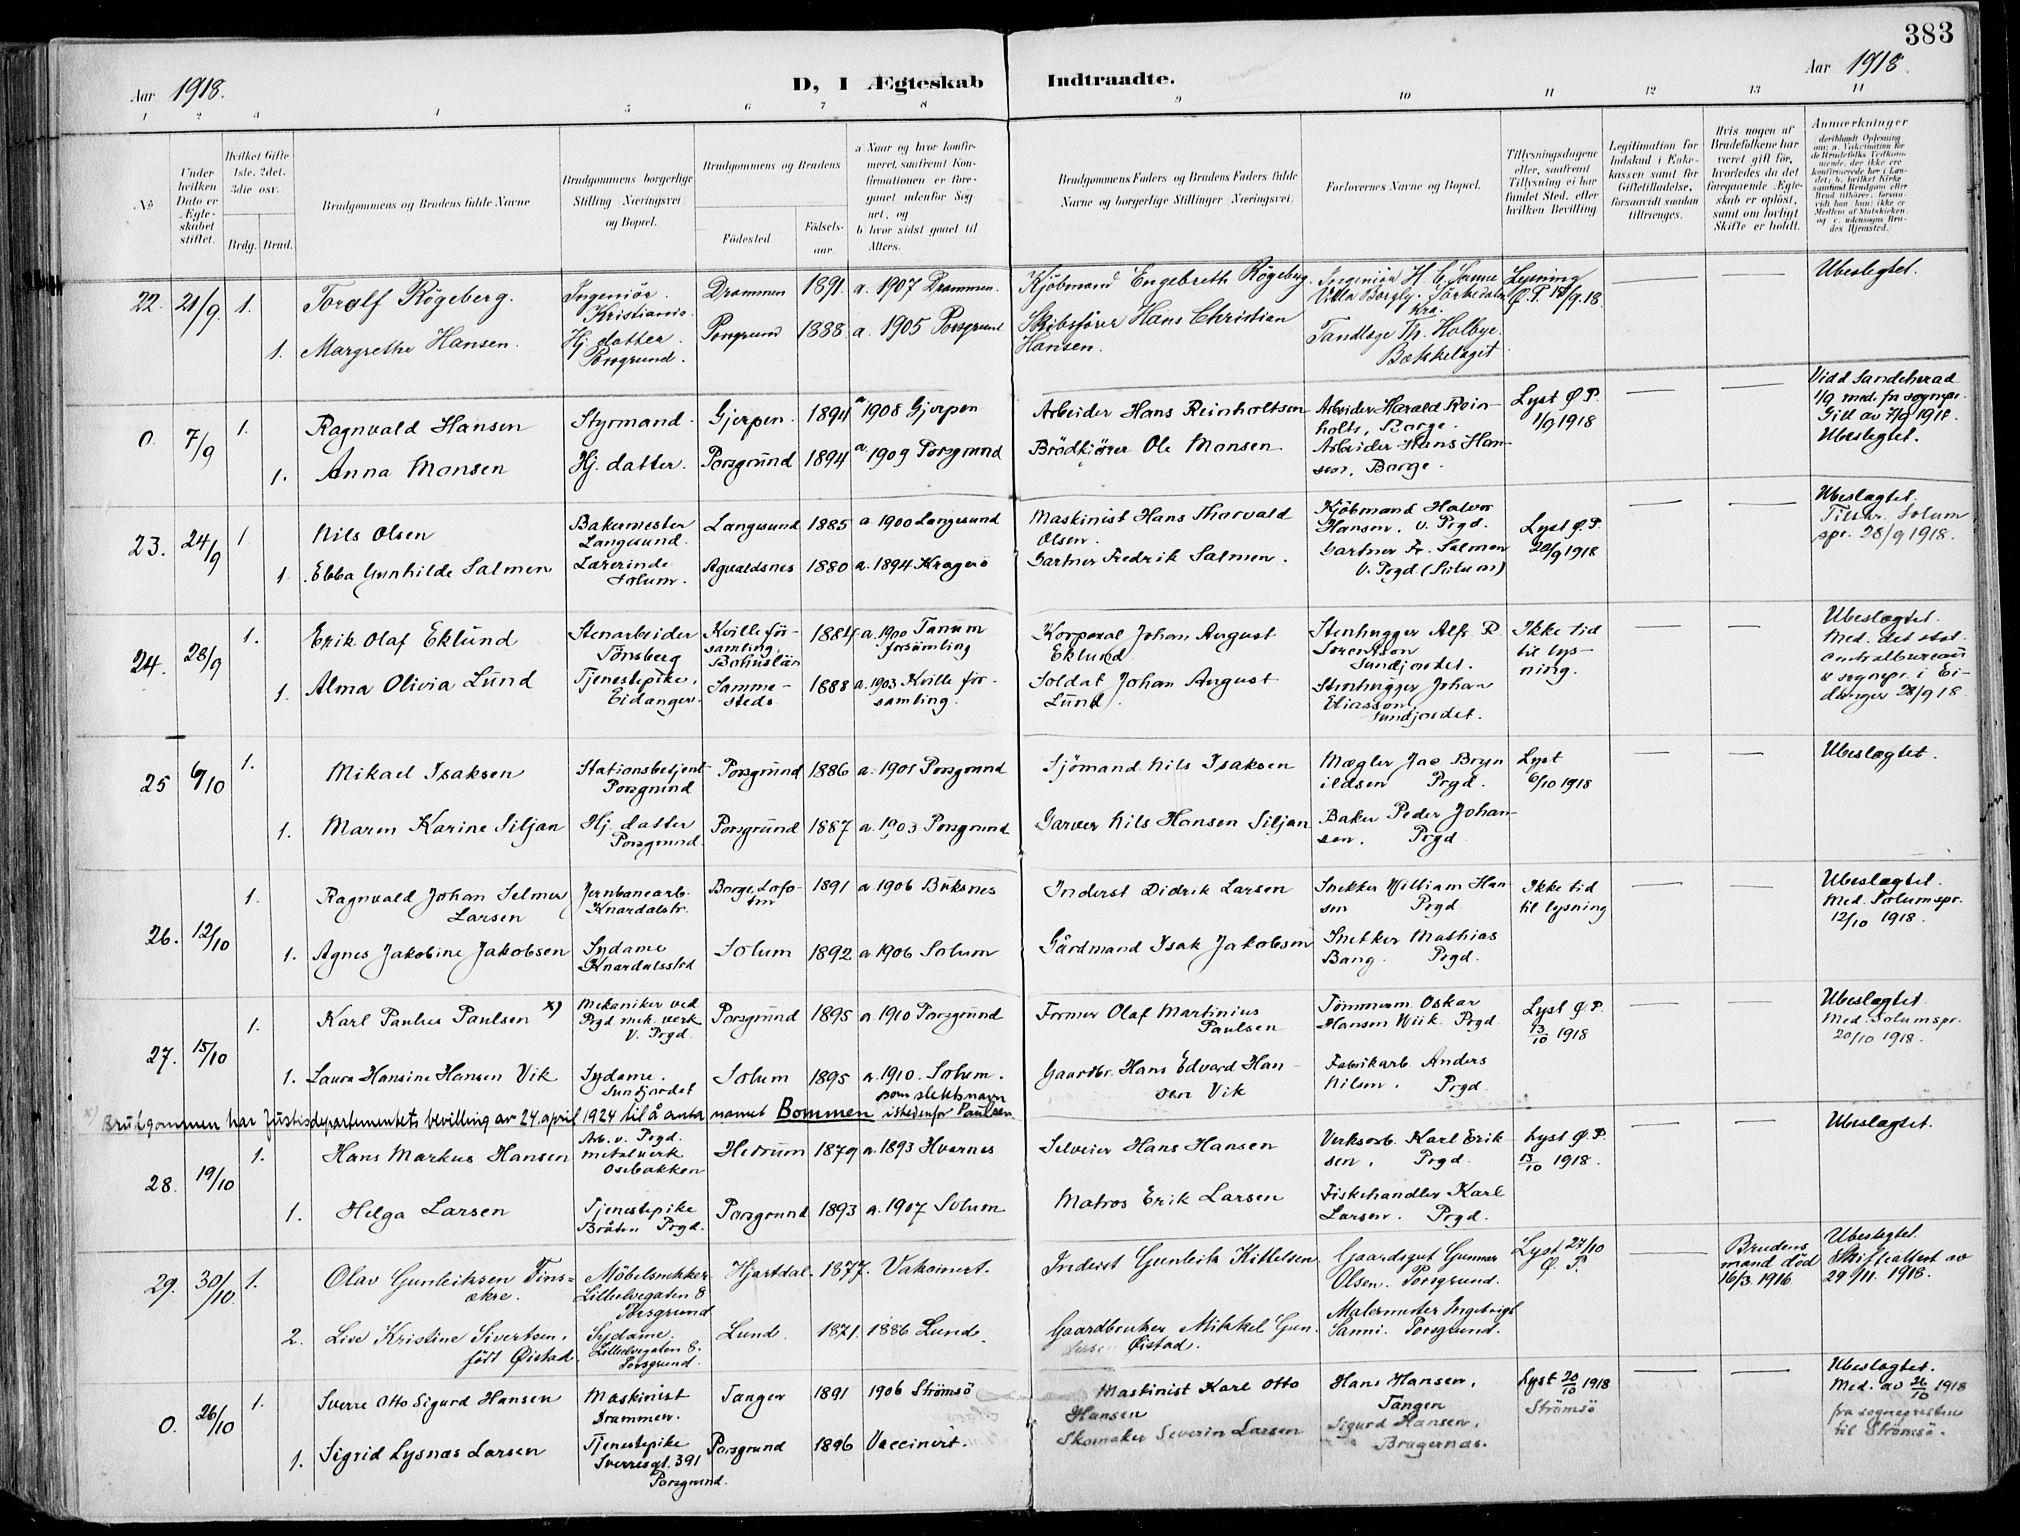 383
Aar 1918.
D, I Ægteskab Indtraadte.
Aar 1918.
1 2 3 4 5 6 7 8 9 10 11 12 13 14
No
Under hvilken Dato er Ægteskabet stiftet.
Hvilket Gifte 1ste. 2det. 3die osv.
Brdg. Brud.
Brudgommens og Brudens fulde Navne
Brudgommens borgerlige Stilling Næringsvei og Bopæl.
Brudgommens og Brudens
Fødested. Fødsels-aar.
a Naar og hvor konfirmeret, saafremt Konfirmationen er foregaaet udenfor Sognet, og
b hvor sidst gaaet til Alters.
Brudgommens Faders og Brudens Faders fulde Navne og borgerlige Stillinger Næringsvei.
Forlovernes Navne og Bopæl.
Tillysningsdagene eller, saafremt Tillysning ei har fundet Sted, efter hvilken Bevilling
Legitimation for Indskud i Enkekassen samt for Giftetilladelse, forsaavidt saadan tiltrænges.
Hvis nogen af Brudefolkene har været gift før, hvorledes da det foregaaende Ægteskab er opløst, samt om lovligt Skifte er holdt.
Anmærkninger
22. 21/9 1. Toralf Rögeberg. Ingeniör. Kristiania. Drammen 1891. a. 1907 Drammen. Kjöbmand Engebreth Rögeberg. Ubeslegtet.
Lysning Ø.P. 15/9.18.
1. Margrethe Hansen. Hj. datter. Porsgrund. Porsgrund 1888. a. 1905 Porsgrund Skibsförer Hans Christian Hansen. Tandlæge Th. Holbye. Bækkelaget.
0. 7/9 1. Ragnvald Hansen Styrmand. Gjerpen. 1894 a 1908 Gjerpen Arbeider Hans Reinholtsen Arbeider Harald Reinholts, Borge. Lyst Ø.P. 1/9 1918
1. Anna Monsen Hj. datter. Porsgrund 1894 a 1909 Porsgrund Brödkjörer Ole Monsen Arbeider Hans Hansen. Borge. Ubeslegtet.
23. 24/9 1 Nils Olsen Bakermester Langesund. Langesund 1885 a 1900 Langesund Maskinist Hans Thorvald Olsen. Kjöbmand Halvor Hansen. V. Prgd. Lyst Ø.P. 20/9 1918 Ubeslægtet. Tilskr. Solum spr. 28/9 1918.
1. Ebba Gunhilde Salmen Lærerinde Solum. Agvaldsnes 1880 a. 1894 Kragerö Gartner Fredrik Salmen. Gartner Fr. Salmen V. Prgd. (Solum)
24. 28/9 1. Erik Olaf Eklund Stenarbeider Tönsberg Kville församling, Bohuslän 1884 a. 1900 Tanum församling Korporal Johan August Eklund Stenhugger Alfr. P. Sörensson Sundjordet. Ikke tid til lysning. Ubeslægtet. Med. det stat. centralbureau & sognepr. i Eidanger 28/9 18
1. Alma Olivia Lund Tjenestepike, Eidanger. Sammesteds 1888 a. 1903 Kville församling. Soldat Johan August Lund. Stenhugger Johan Eliasson Sundjordet.
25 6/10 1. Mikael Isaksen Stationsbetjent Porsgrund Porsgrund 1886 a. 1901 Porsgrund Sjömand Nils Isaksen Mægler Jac Brynildsen Prgd. Lyst 6/10 1918 Ubeslægtet.
1. Maren Karine Siljan Hj. datter Porsgrund. Porsgrund 1887 a. 1903 Porsgrund Garver Nils Hansen Siljan Baker Peder Johansen. Prgd
26. 12/10 1. Ragnvald Johan Selmer Larsen Jernbanearb. Knardalstr. Borge, Lofoten 1891 a 1906 Buksnes Inderst Didrik Larsen Snekker William Hansen Prgd. Ikke tid til lysning Ubeslægtet. Med. Solumspr. 12/10 1918.
1. Agnes Jakobine Jakobsen Sydame Knardalsstrd Solum 1892 a 1906 Solum Gårdmand Isak Jakobsen Snekker Mathias Bang. Prgd.
27. 15/10 1. Karl Paulus Paulsen x) Mekaniker ved Prgd mek. verk V. Prgd. Porsgrund 1895 a 1910 Porsgrund Former Olaf Martinius Paulsen Tömmerm. Oskar Hansen Wiik Prgd. Lyst Ø.P. 13/10 1918 Ubeslægtet. Med. Solumspr. 20/10 1918.
1. Laura Hansine Hansen Vik Sydame. Sundjordet Solum 1895 a. 1910. Solum. Gaardbr. Hans Edvard Hansen Vik Fabrikarb. Anders Nilsen. Prgd.
x) Brudgommen har Justisdepartementets bevilling av 24. april 1924 til å anta navnet Bommen som slektsnavn istedenfor Paulsen
28. 19/10 1. Hans Markus Hansen Arb. v. Prgd. metalverk Osebakken Hedrum 1879 a. 1893 Hvarnes Selveier Hans Hansen Verksarb. Karl Eriksen. Prgd. Lyst Ø.P. 13/10 1918. Ubeslægtet.
1. Helga Larsen Tjenestepike Bråten Prgd. Porsgrund 1893 a. 1907 Solum Matros Erik Larsen Fiskehandler Karl Larsen. Prgd.
29. 30/10 1. Olav Gunleiksen Tinsækre. Möbelsnekker Lilleelvegaten 8 Porsgrund Hjartdal 1877. Vakcinert. Inderst Gunleik Kittelsen Gaardsgut Gunnar Olsen. Porsgrund. Lyst 27/10 Ø.P. Brudens mand död 16/3 1916. Ubeslegtet. Skifteattest av 29/11. 1918.
2. Lise Kristine Sivertsen, födt Øistad. Sydame. Lilleelvegaten 8. Porsgrund. Lund. 1871. 1886 Lund. Gaardbruker Mikkel Gundersen Øistad. Malermester Ingebrigt Sanni. Porsgrund.
0. 26/10 1. Sverre Otto Sigurd Hansen Maskinist Drammen. Tangen 1891 1906 Strömsö Maskinist Karl Otto Hansen Hans Hansen, Tangen Lyst 20/10 1918 Strömsö Ubeslægtet. Med. av 26/10 1918 fra sognepresten til Strömsö.
1. Sigrid Lysnas Larsen Tjenestepike Sverresgt. 391 Porsgrund. Porsgrund 1896 Vaccinert. Skomaker Severin Larsen Sigurd Hansen, Bragernes.